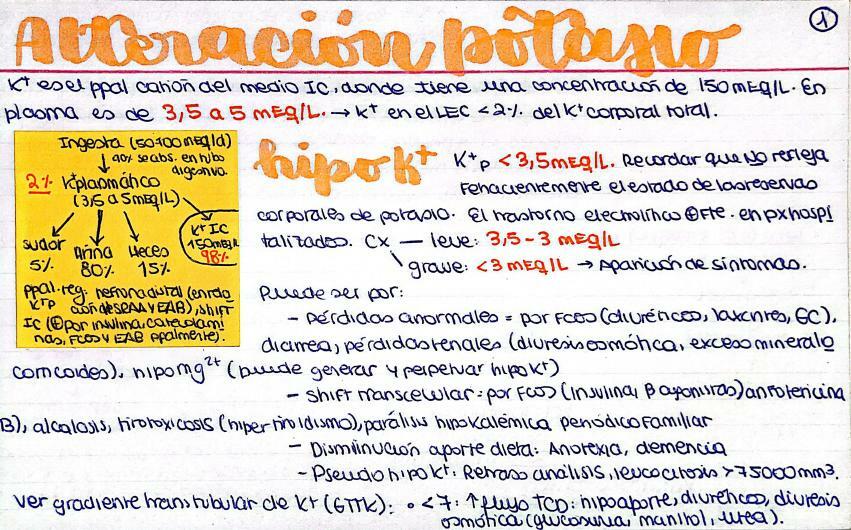 Alteración potasio
1
K+ es el ppal catión del medio IC, donde tiene una concentración de 150 mEq/L. En
plasma es de 3,5 a 5 mEq/L. → K+ en el LEC < 2% del K+ corporal total.
Ingesta (50-100 mEq/d)
90% se abs. en tubo
digestivo.
2% K+ plasmático
(3,5 a 5 mEq/L)
K+ IC
150 mEq/L
98%
sudor orina Heces
5% 80% 15%
ppal. reg: nefrona distal (en rela
K+p ción de SRAA y EAB), shift
IC (⊕ por insulina, catecolami
nas, FCOS y EAB ppalmente).
hipo K+
K+p < 3,5 mEq/L. Recordar que NO refleja
fehacientemente el estado de las reservas
corporales de potasio. El trastorno electrolítico ⊕ fte. en px hospi
talizados. Cx — leve: 3,5 - 3 mEq/L
grave: < 3 mEq/L → Aparición de síntomas.
Puede ser por:
- Pérdidas anormales = por FCOS (diuréticos, laxantes, GC),
diarrea, pérdidas renales (diuresis osmótica, exceso mineralo
corticoides), hipo Mg2+ (puede generar y perpetuar hipo K+)
- Shift transcelular = por FCOS (insulina, B agonistas) anfotericina
B), alcalosis, tirotoxicosis (hipertiroidismo), parálisis hipokalémica periódico familiar
- Disminución aporte dieta: Anorexia, demencia
- Pseudo hipo K+: Retraso análisis, leucocitosis > 75000 mm3.
Ver gradiente transtubular de K+ (GTTK): ° < 7: ↑ flujo TCD: hipoaporte, diuréticos, diuresis
osmótica (glucosuria, manitol, urea).